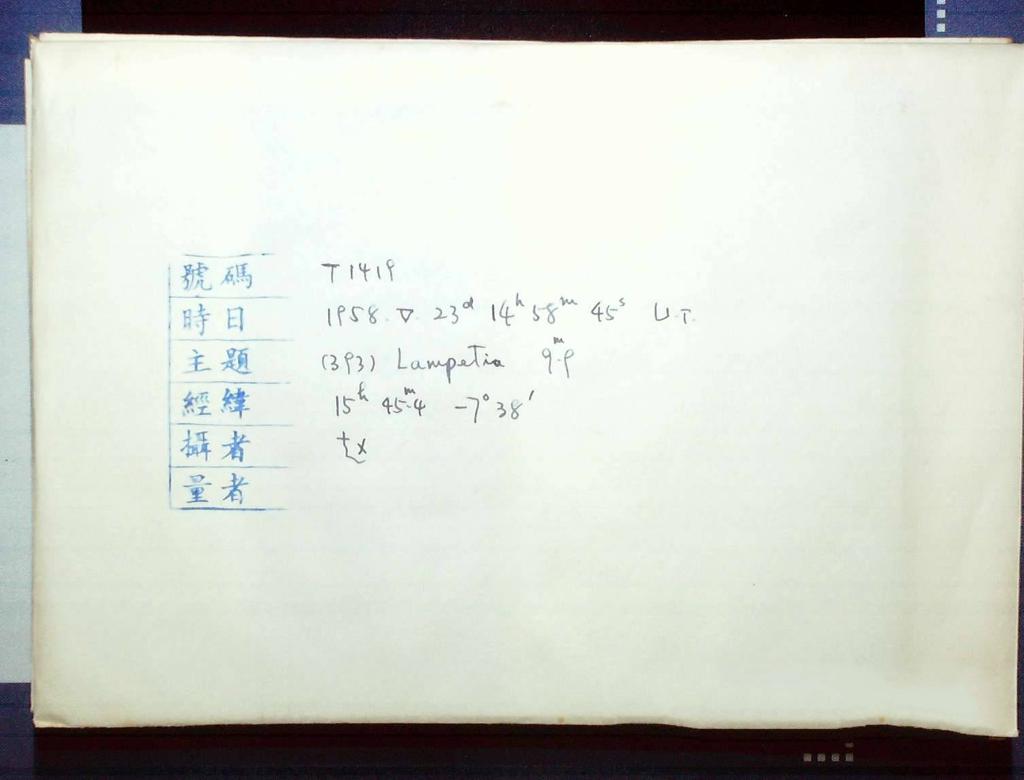 號碼 T1419
時日 1958. V. 23ᵈ 14ʰ 58ᵐ 45ˢ U.T.
主題 (393) Lampetia 9ᵐ.9
經緯 15ʰ 45ᵐ.4 -7° 38′
攝者 赵
量者